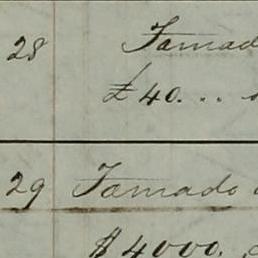 28 Tamad
£40. ..
29 Tamado
$4000.